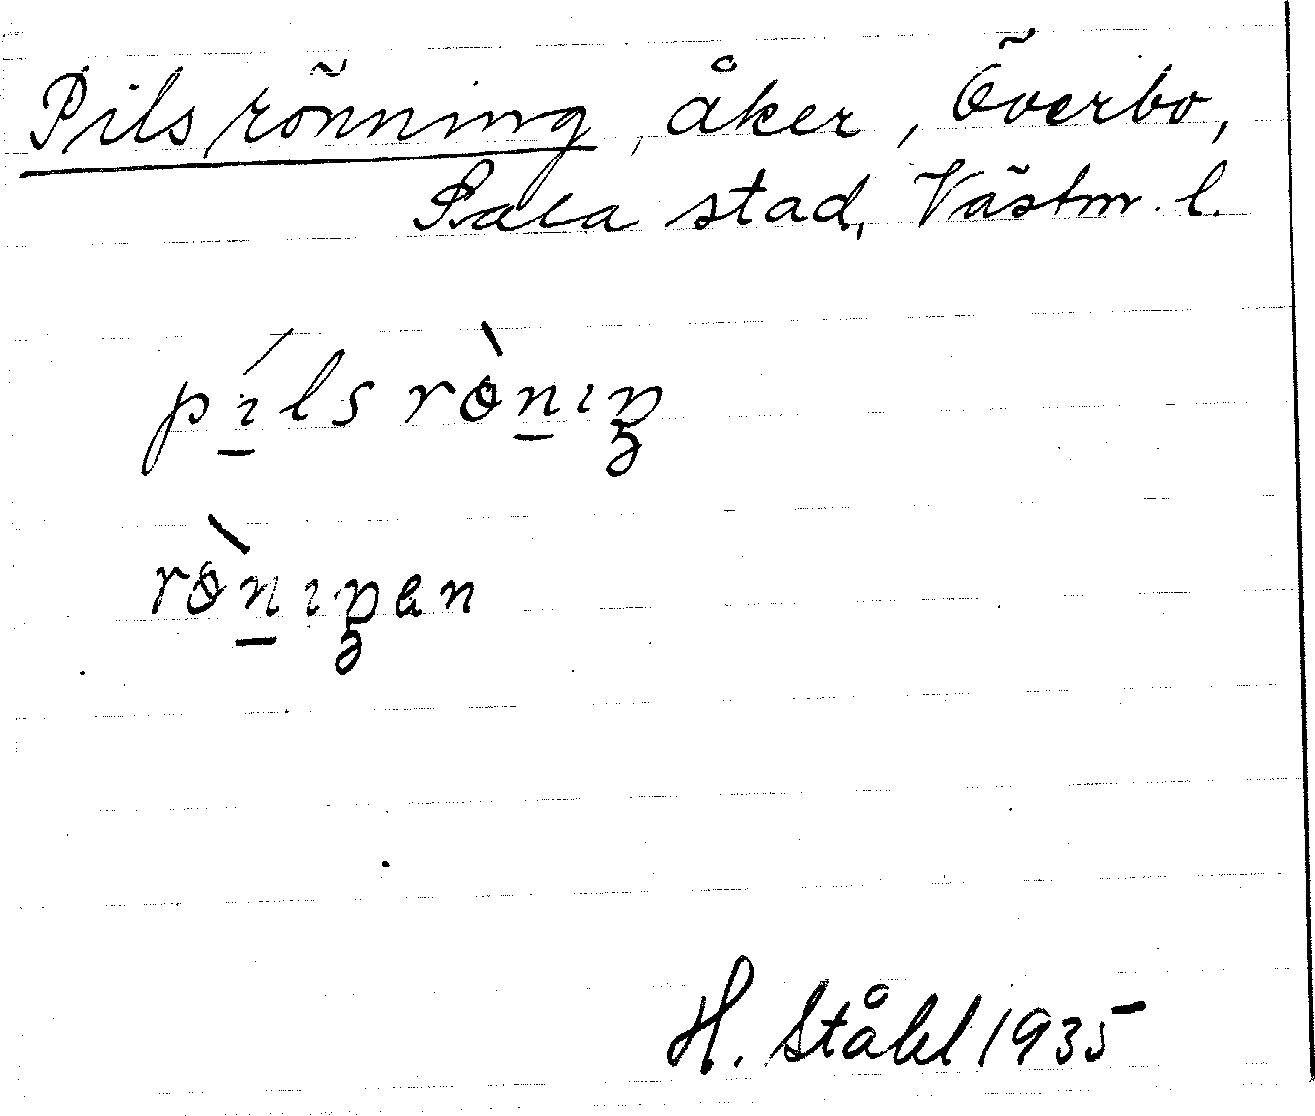 Pilsrönning, åker, Överbo,
Sala stad, Västm. l.
pi̲lsrò̀n̲ıŋ
rò̀n̲ıŋen
H. Ståhl 1935